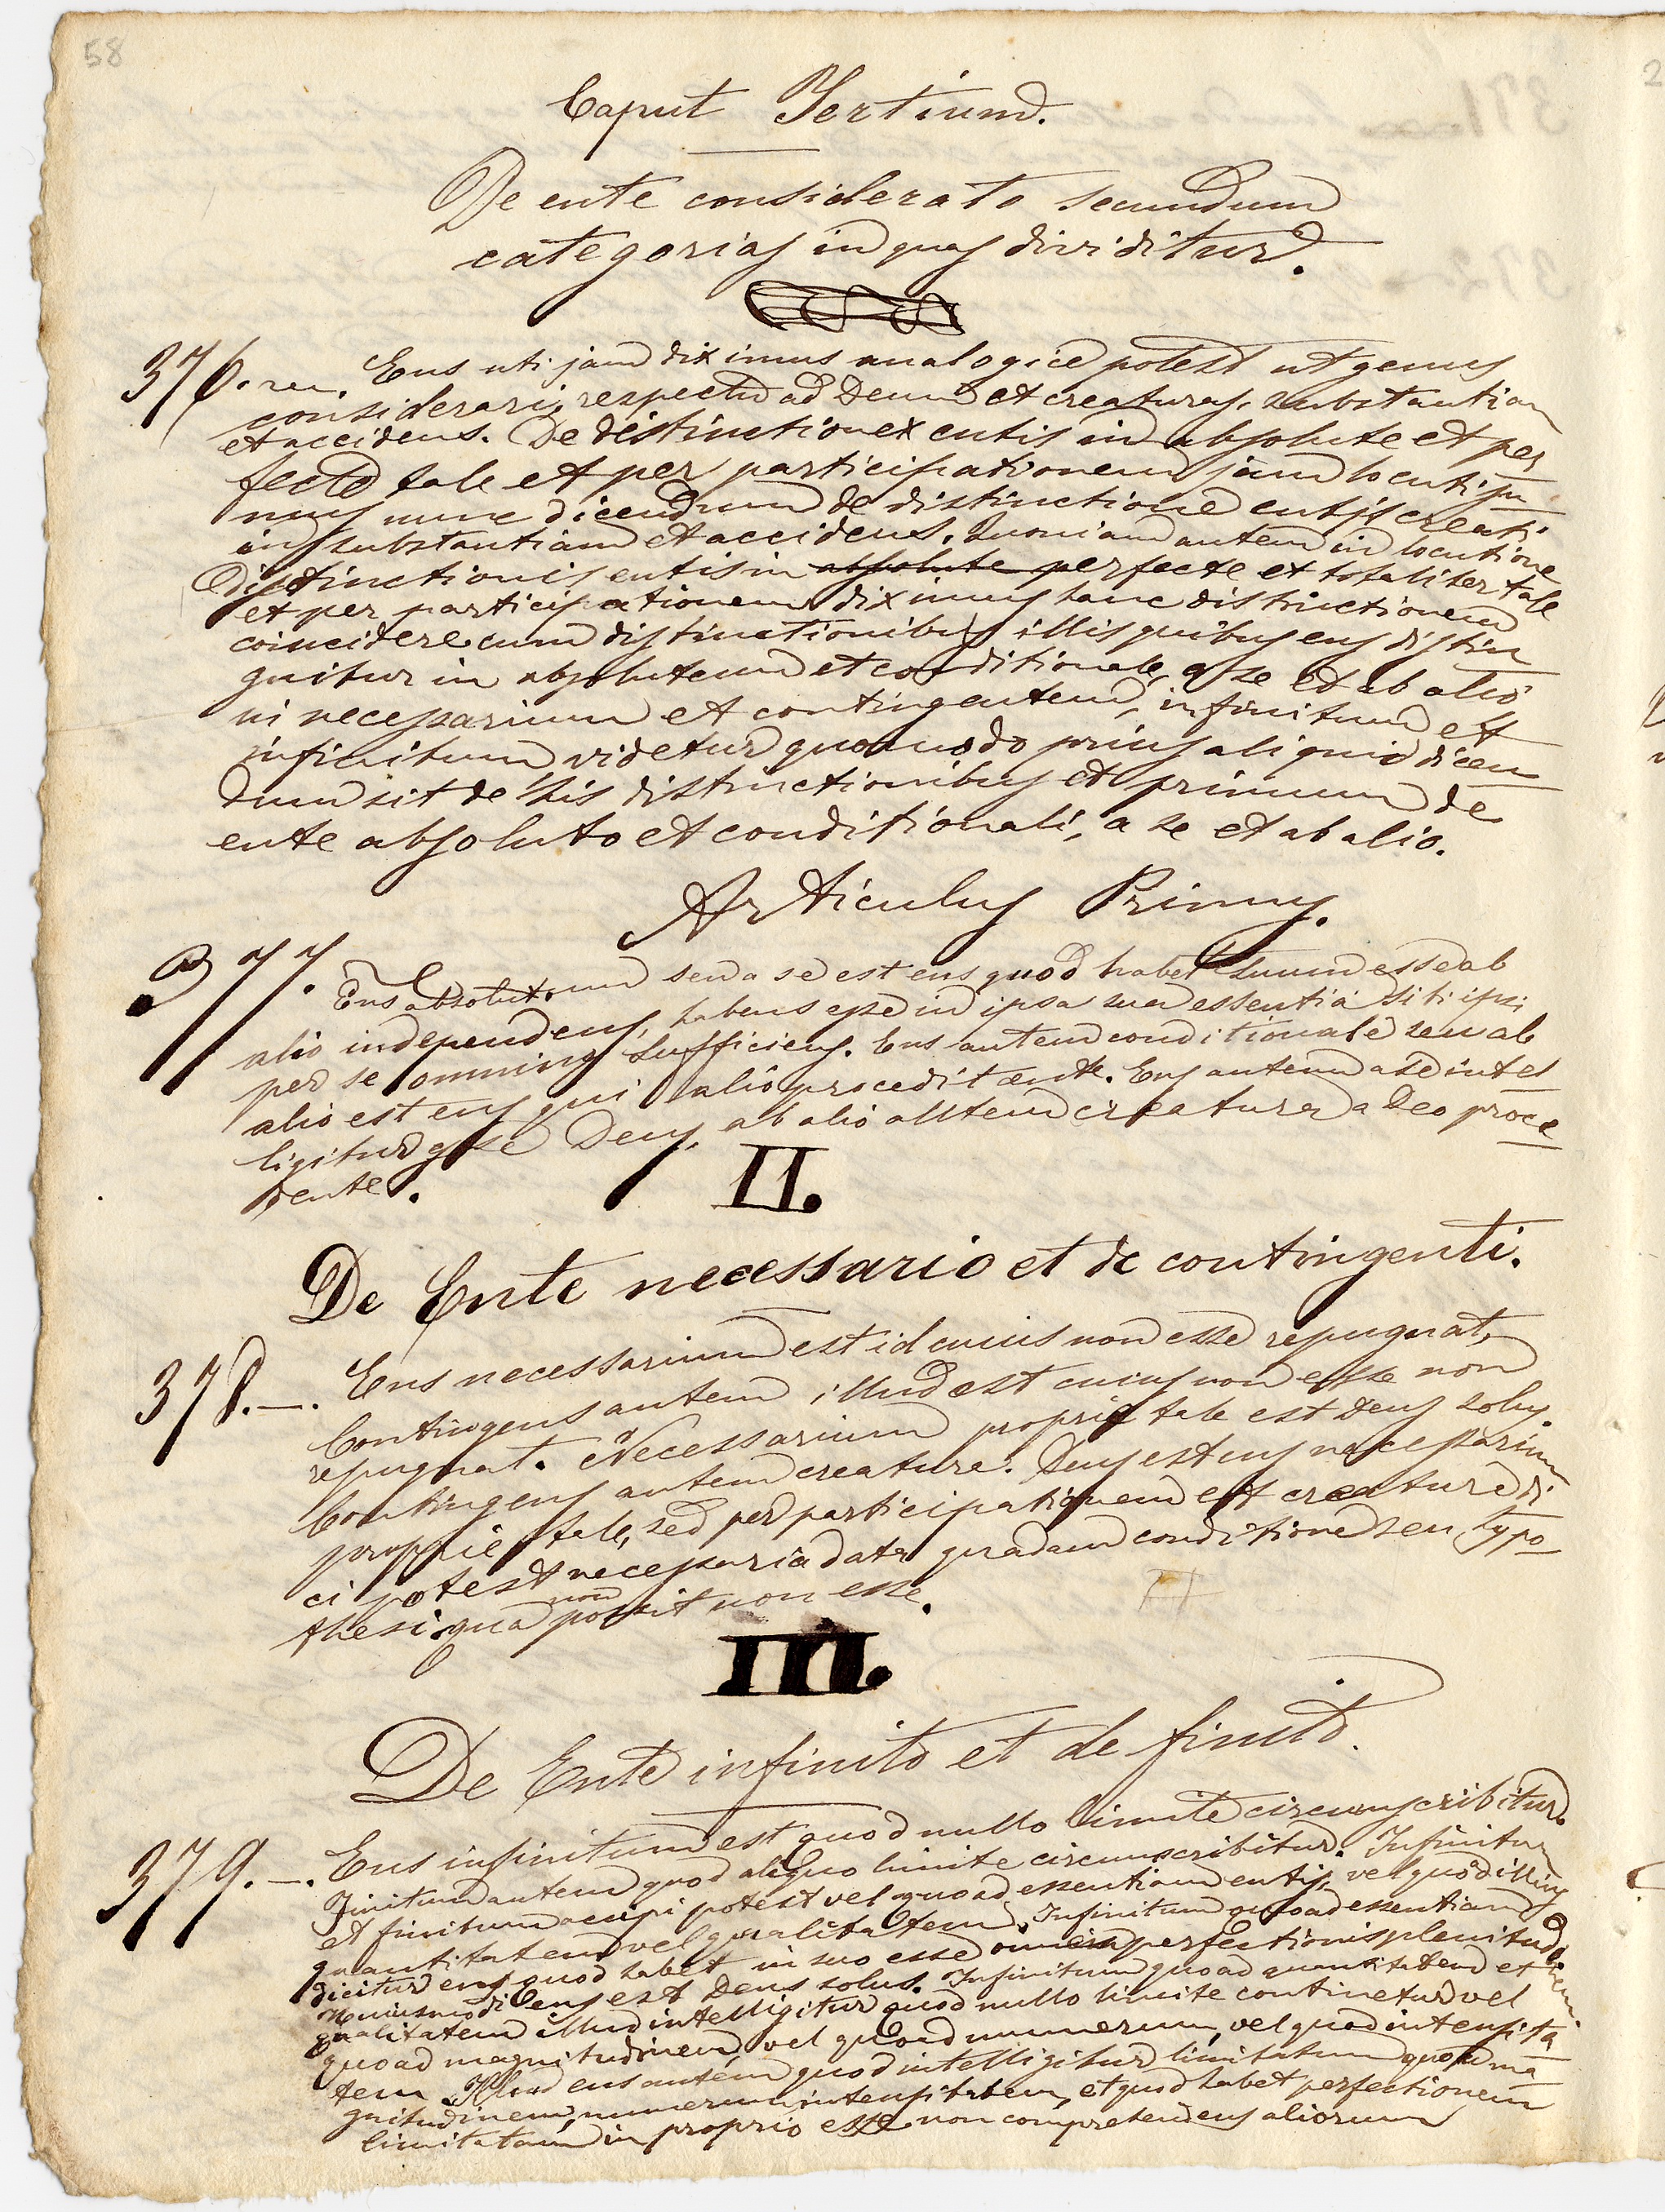 58
Caput Tertium.
De ente considerato secundum
categorias in quas dividitur.
376. Ens uti jam diximus analogice potest ut genus
considerari, respectu ad Deum et creaturas, substantiam
et accidens. De distinctione entis in absolute et per
fecte tale et per participationem jam locuti su
mus nunc dicendum de distinctione entis creati
in substantiam et accidens. Quoniam autem in locutione
distinctionis entis in absolute perfecte et totaliter tale
et per participationem diximus hanc distinctionem
coincidere cum distinctionibus illis quibus ens distin
guitur in absolutum et conditionale, a se et ab alio
in necessarium et contingentem, infinitum et
infinitum videtur quomodo prius aliquid dicen
dum sit de his distinctionibus et primum de
ente absoluto et conditionali, a se et ab alio.
Articulus Primus.
377. Ens absolutum seu a se est ens quod habet suum esse ab
alio independens, habens esse in ipsa sua essentia sibi ipsi
per se omnino sufficiens. Ens autem conditionale seu ab
alio est ens qui alio procedit ente. Ens autem a se intel
ligitur esse Deus, ab alio autem creatura a Deo proce
dente.
II.
De Ente necessario et de contingenti.
378.-. Ens necessarium est id cuius non esse repugnat,
Contingens autem illud est cuius non esse non
repugnat. Necessarium proprie tale est Deus solus.
Contingens autem creature. Deus est ens necessarium
proprie tale, sed per participationem et creature di
ci potest necessaria data quadam conditione seu hypo
thesi qua non possit non esse.
III.
De Ente infinito et de finito.
379.-. Ens infinitum est quod nullo limite circumscribitur.
Finitum autem quod aliquo limite circumscribitur. Infinitum
et finitum accipi potest vel quoad essentiam entis, vel quod illius
quantitatem vel qualitatem. Infinitum quoad essentiam
dicitur ens quod habet in suo esse omnem perfectionis plenitudinem
Huiusmodi ens est Deus solus. Infinitum quoad quantitatem et
qualitatem illud intelligitur quod nullo limite continetur vel
quoad magnitudinem, vel quoad numerum, vel quod intensita
tem. Illud ens autem quod intelligitur limitatum quoad ma
gnitudinem, numerum intensitatem, et quod habet perfectionem
limitatam in proprio esse non comprehendens aliorum